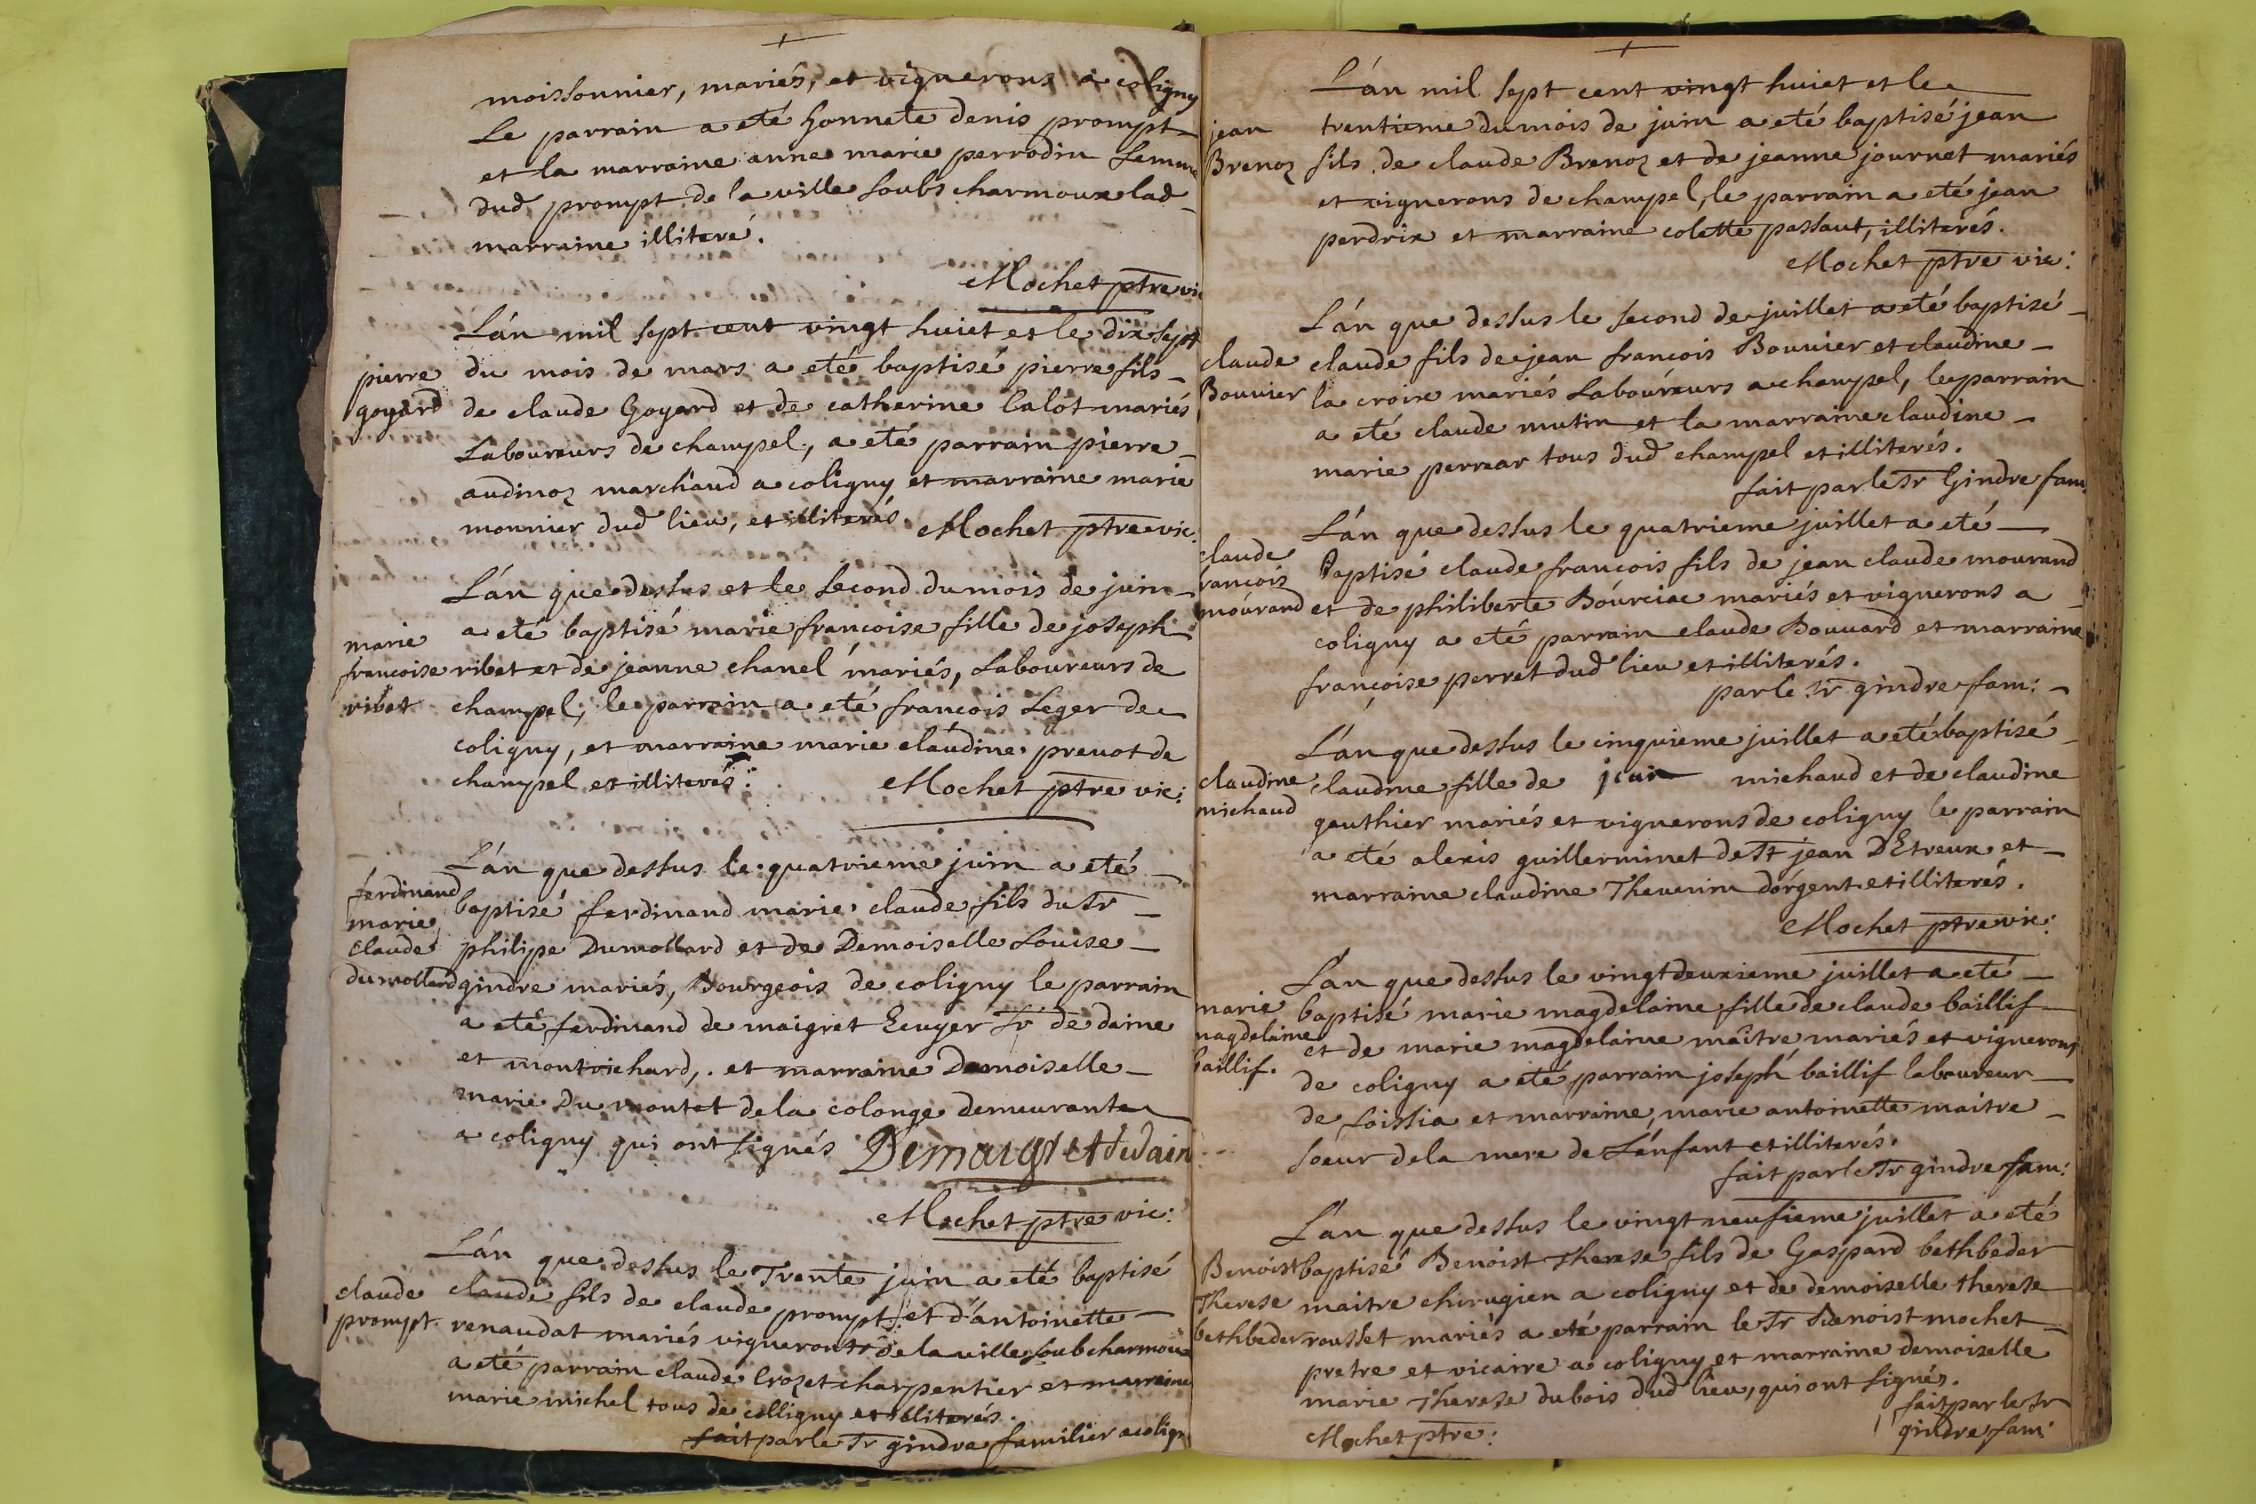 moissonnier, mariés, et vignerons a coligny
Le parrain a eté honnete denis prompt
et la marraine anne marie perrodin femme
dud prompt de la ville soubs charmoux lad
marraine illiteré.
Mochet ptre vic
L'án mil sept cent vingt huict et le dix sept
pierre goyard
du mois de mars a eté baptisé pierre fils
de claude Goyard et de catherine Calot mariés
Laboureurs de champel, a eté parrain pierre
audinoz marchand a coligny et marraine marie
monnier dud lieu, et illiterés Mochet ptre vic:
L'án que dessus et le second du mois de juin
marie françoise ribet
a eté baptisé marie francoise fille de joseph
ribet et de jeanne chanel mariés, Laboureurs de
champel; le parrain a eté françois Leger de
coligny, et marraine marie claudine prevot de
champel et illiterés: Mochet ptre vic:
L'án que dessus le quatrieme juin a eté
ferdinand marie claude dumollard
baptisé ferdinand marie claude fils du Sr
philipe Dumollard et de Demoiselle Louise
gindre mariés, Bourgeois de coligny le parrain
a eté ferdinand de maigret Ecuyer Sr de daine
et montrichard, et marraine Demoiselle
marie Du montet de la colonge demeurante
a coligny qui ont signés Demaigret
Mochet ptre vic:
L'án que dessus le Trente juin a eté baptisé
claude prompt.
claude fils de claude prompt et d'antoinette
renaudat mariés vignerons de la ville soub charmoux
a eté parrain claude Crozet charpentier et marraine
marie michel tous de colligny et illiterés.
fait par le Sr gindre familier a coligny
L'án mil sept cent vingt huict et le
jean Brenoz
trentieme du mois de juin a eté baptisé jean
fils de claude Brenoz et de jeanne journet mariés
et vignerons de champel, le parrain a eté jean
perdrix et marraine colette passaut, illiterés.
Mochet ptre vic:
L'án que dessus le second de juillet a eté baptisé
claude Bouvier
claude fils de jean francois Bouvier et claudine
la croix mariés Laboureurs a champel, le parrain
a eté claude mutin et la marraine claudine
marie perrear tous dud champel et illiterés.
fait par le Sr Gindre fam:
L'án que dessus le quatrieme juillet a eté
claude francois mourand
Baptisé claude francois fils de jean claude mourand
et de philiberte Bourciac mariés et vignerons a
coligny a eté parrain claude Bouvard et marraine
françoise perret dud lieu et illiterés.
par le Sr gindre fam:
L'án que dessus le cinquieme juillet a eté baptisé
claudine michaud
claudine fille de jean michaud et de claudine
gauthier mariés et vignerons de coligny le parrain
a eté alexis guillerminet de St jean D'Etreux et
marraine claudine Thevenin dorgent et illiterés.
Mochet ptre vic:
L'an que dessus le vingtdeuxieme juillet a eté
marie magdelaine baillif.
baptisé marie magdelaine fille de claude baillif
et de marie magdelaine maître mariés et vignerons
de coligny a eté parrain joseph baillif laboureur
de Loissia et marraine marie antoinette maitre
soeur de la mere de L'énfant et illiterés.
fait par le Sr gindre fam:
L'an que dessus le vingt neufieme juillet a eté
Benoist Therese bethbeder
baptisé Benoist Therese fils de Gaspard bethbeder
maitre chirugien a coligny et de demoiselle therese
rousset mariés a eté parrain le Sr Benoist mochet
pretre et vicaire a coligny et marraine demoiselle
marie Therese dubois dud lieu, qui ont signés.
Mochet ptre:
fait par le Sr
gindre fam: